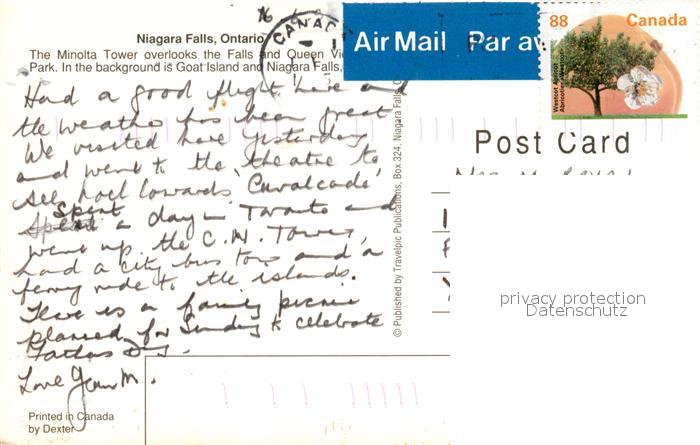 Niagara Falls, Ontario
The Minolta Tower overlooks the Falls and Queen Vi
Park. In the background is Goat Island and Niagara Falls,
Had a good flight here and
the weather has been great.
We visited here yesterday
and went to the theatre to
see Noel Cowards 'Cavalcade'
Spent a day in Toronto and
went up the C.N. Tower,
had a city bus tour and a
ferry ride to the islands.
There is a family picnic
planned for Sunday to celebrate
Fathers Day.
Love Jean M.
Printed in Canada
by Dexter
© Published by Travelpic Publications, Box 324, Niagara Falls, O
CANAD
Air Mail Par av
88 Canada
Westcot Apricot
Abricotier Westcot
Post Card
privacy protection
Datenschutz